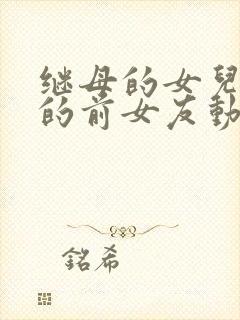 继母的女兒
的前女友動
銘希